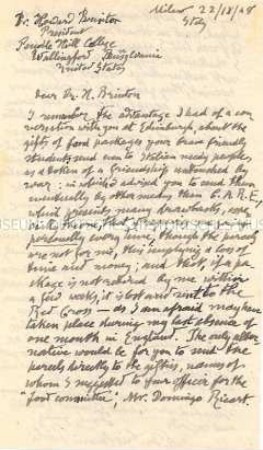 Dr. Howard Brinton
President
Pendle Hill College
Wallingford, Pennsylvania
United States
Milan 22/12/48
Italy
Dear Dr. H. Brinton
I remember the advantage I had of a con-
versation with you at Edinburgh, about the
gifts of food packages your brave friendly
students send even to Italian needy people,
as a token of a friendship untouched by
war: in which I advised you to send them
eventually by other means than C.A.R.E.,
which presents many drawbacks, one
personally every time, though the parcels
are not for me, this implying a loss of
time and money; and that, if a pa-
ckage is not retired by me within
a few weeks, it is lost and sent to the
Red Cross – as I am afraid may have
taken place during my last absence of
one month in England. The only alter
native would be for you to send the
parcels directly to the giftees, names of
whom I suggested to your officer for the
"food committee", Mr. Domingo Ricart.